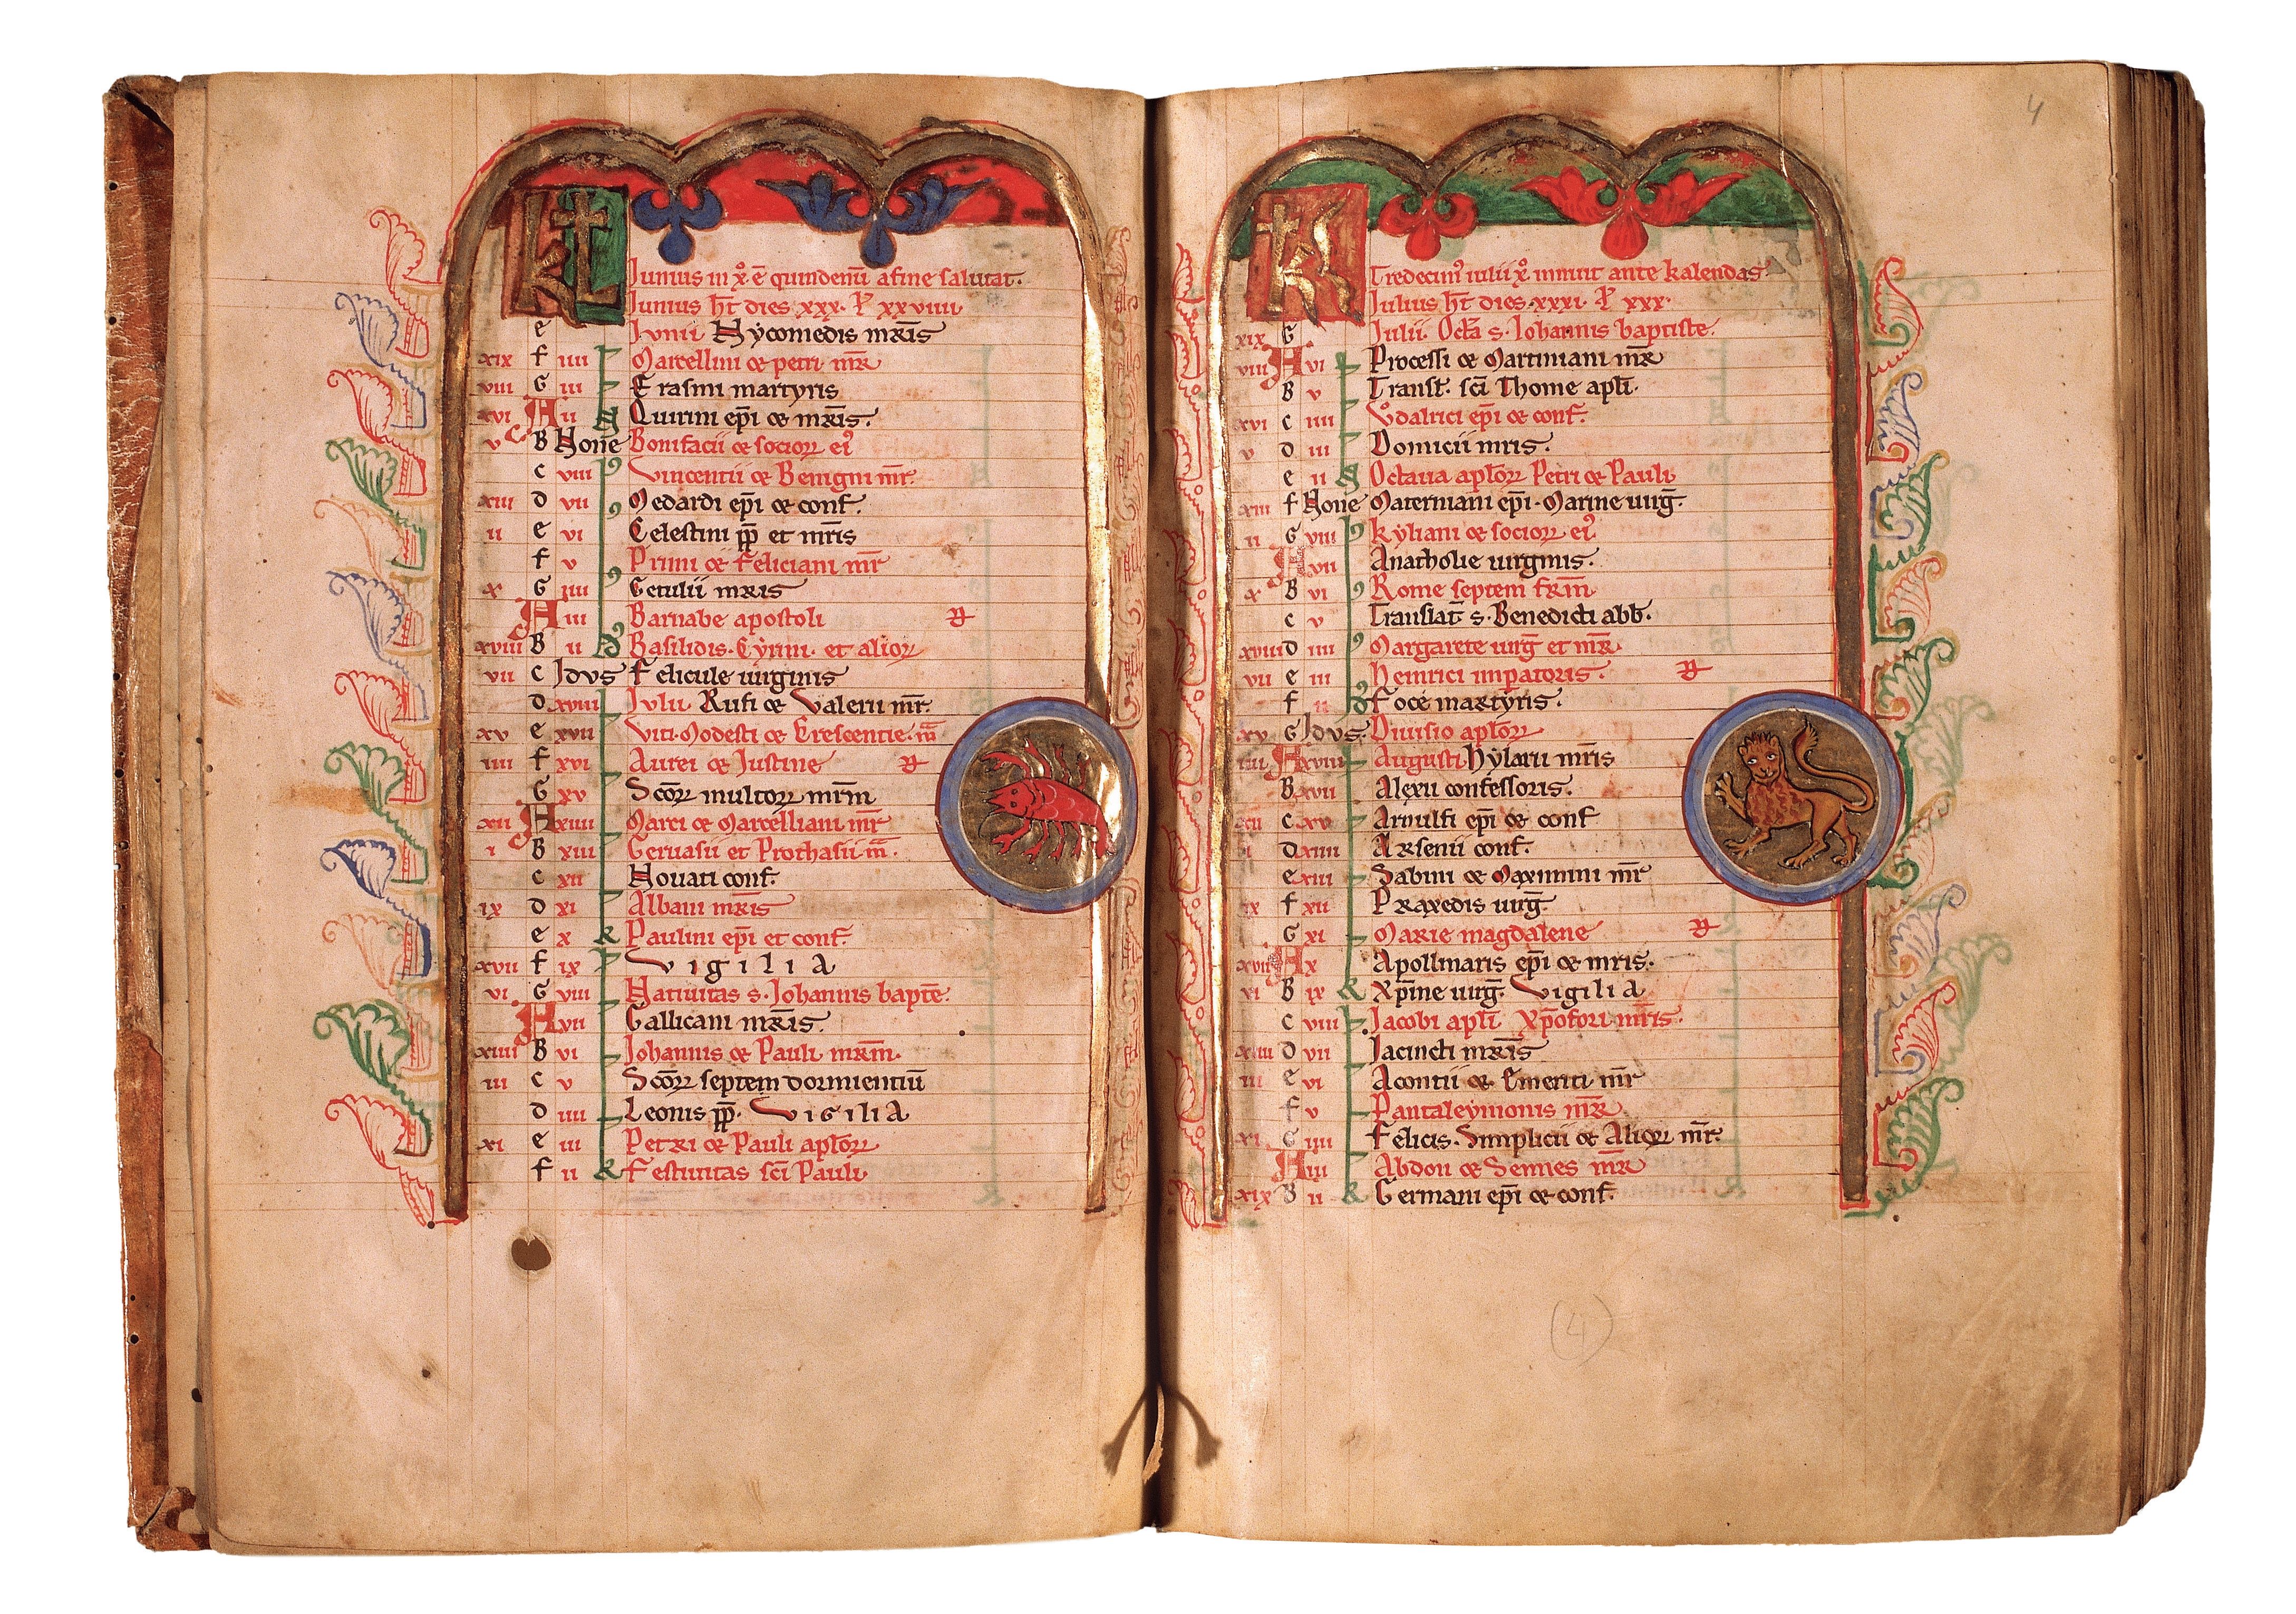 KL
Junius in xº ē quindenū a fine salutat.
Junius h̄t dies xxx. L' xxviiii
e Junii Nycomedis mr̄is
xix f iiii Marcellini & petri mr̄
viii G iii Erasmi martyris
xvi A ii Quirini ep̄i & mr̄is.
v B None Bonifacii & socioꝝ ei'
c viii Vincentii & Benigni mr̄.
xiii d vii Medardi ep̄i & conf.
ii e vi Celestini pp̄ et mr̄is
f v Primi & feliciani mr̄
x G iiii Getulii mr̄is
A iii Barnabe apostoli
xviii B ii Basilidis. Cyrini. et alioꝝ
vii c Idus Felicule uirginis
d xviii Julii Rufi & Valerii mr̄.
xv e xvii Viti. Modesti & Crescentie. m̄
iiii f xvi Aurei & Justine
G xv Sc̄oꝝ multoꝝ mr̄m
xii A xiiii Marci & Marcelliani mr̄
i B xiii Geruasii et Prothasii. m̄.
c xii Nouati conf.
ix d xi Albani mr̄is
e x Paulini ep̄i et conf.
xvii f ix Vigilia
vi G viii Natiuitas s. Johannis bapte.
A vii Gallicani mr̄is.
xiiii B vi Johannis & Pauli mr̄m.
iii c v Sc̄oꝝ septem dormientiū
d iiii Leonis pp̄. Vigilia
xi e iii Petri & Pauli apl̄oꝝ
f ii Festiuitas sc̄i Pauli
4
KL
Tredecim' iulii xº innuit ante kalendas.
Julius h̄t dies xxxi. L' xxx.
xix G Julii. Octā s. Iohannis baptiste.
viii A vi Processi & Martiniani mr̄
B v Transl. sc̄i Thome apl̄i.
xvi c iiii Vodalrici ep̄i & conf.
v d iii Domicii mris.
e ii Octaua apl̄oꝝ Petri & Pauli
xiii f None Materniani ep̄i. Marine uirḡ.
ii G viii Kyliani & socioꝝ ei'
A vii Anatholie uirginis.
x B vi Rome septem fr̄m
c v Translat̄ s. Benedicti abb.
xviii d iiii Margarete uirḡ et mr̄
vii e iii Heinrici imp̄atoris.
f ii Foce martyris.
xv G Idus. Diuisio apl̄oꝝ
iiii A xviii Augusti Hylarii mr̄is
B xvii Alexii confessoris.
xii c xv Arnulfi ep̄i & conf
i d xiiii Arsenii conf.
e xiii Sabini & Maximini mr̄
ix f xii Praxedis uirḡ.
G xi Marie magdalene
xvii A x Apollinaris ep̄i & mris.
vi B ix Xp̄ine uirḡ. Vigilia
c viii Jacobi apl̄i Xp̄ofori mr̄is.
xiiii d vii Jacincti mr̄is
iii e vi Acontii & Emeriti mr̄
f v Pantaleymonis mr̄
xi G iiii Felicis. Simplicii & Alioꝝ mr̄.
A iii Abdon & Sennes mr̄
xix B ii Germani ep̄i & conf.
(4)